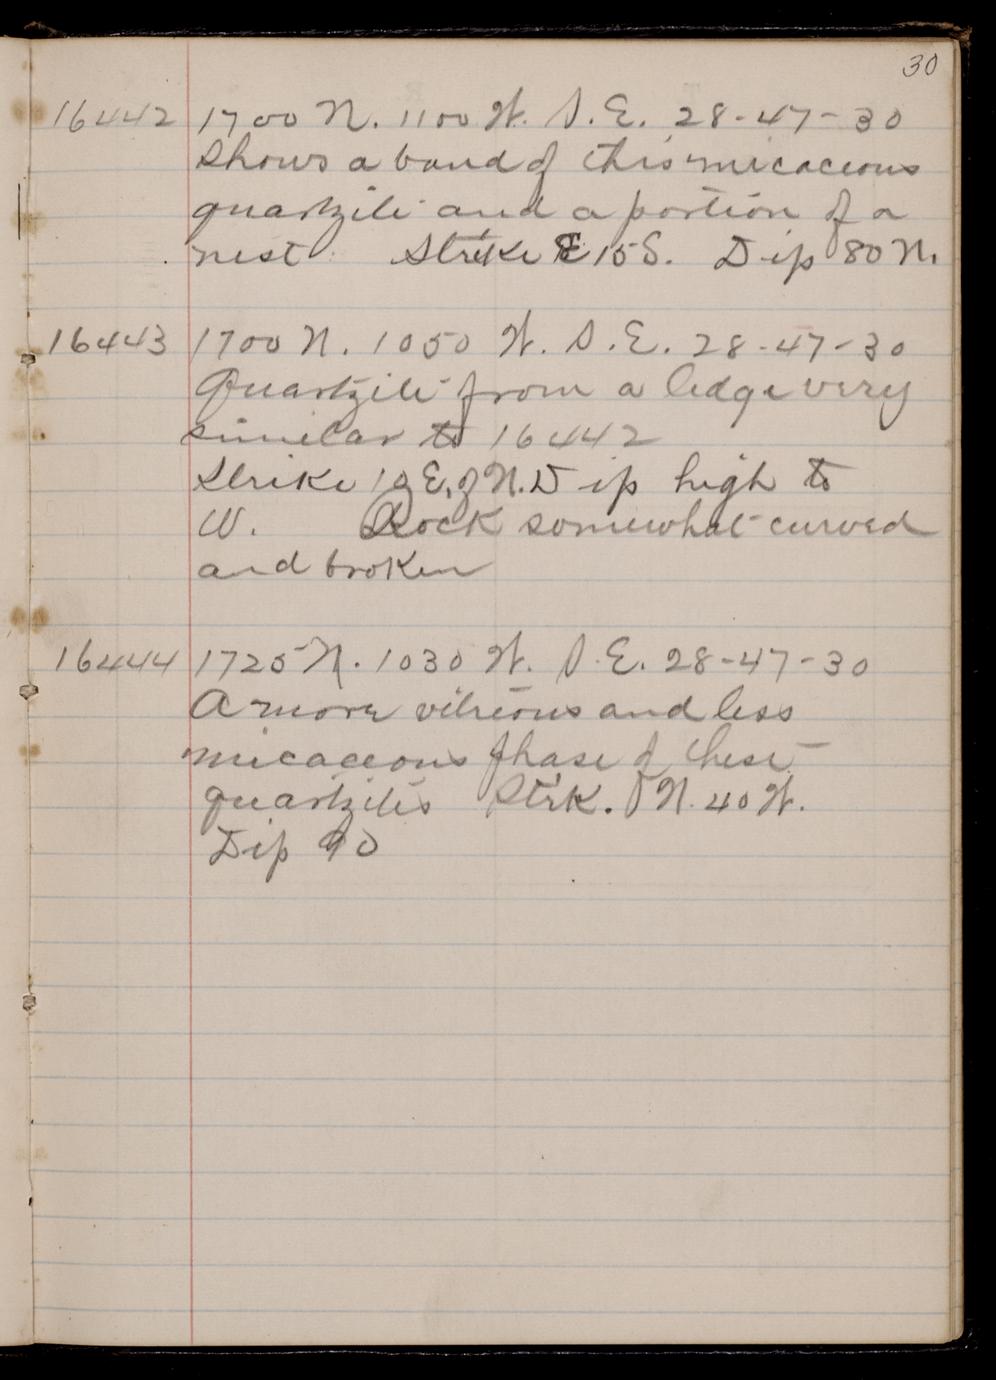 30
16442 1700 N. 1100 W. S.E. 28-47-30
Shows a band of this micaceous
quartzite and a portion of a
nest Strike E 15 S. Dip 80 N.
16443 1700 N. 1050 W. S.E. 28-47-30
Quartzite from a ledge very
similar to 16442
Strike E. of N. Dip high to
W. Rock somewhat curved
and broken
16444 1725 N. 1030 W. S.E. 28-47-30
A more vitreous and less
micaceous phase of these
quartzites Strk. N. 40 W.
Dip 90